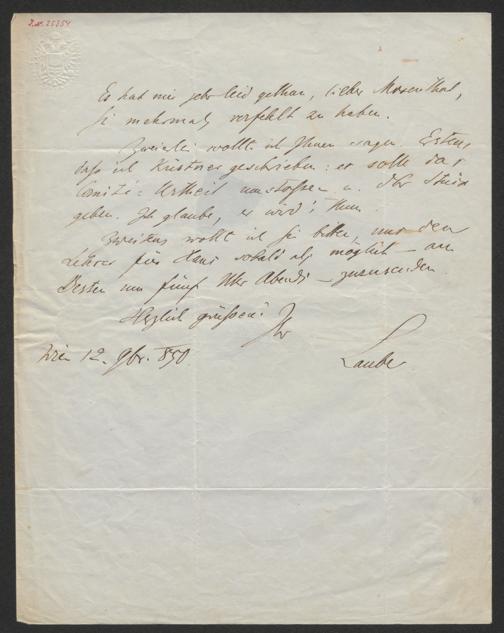 J.N. 25254
Es hat mir sehr leid gethan, lieber Mosenthal,
Sie mehrmals verfehlt zu haben.
Zweierlei wollt' ich Ihnen sagen. Erstens
daß ich Küstner geschrieben: er solle das
Comité-Urtheil umstoßen u. das Stück
geben. Ich glaube, er wird's thun.
Zweitens wollt' ich Sie bitten, mir den
Lehrer für Hans sobald als möglich – am
Besten um fünf Uhr Abends – zuzusenden.
Herzlich grüßend Ihr
Wien 12. 9br. 850 Laube